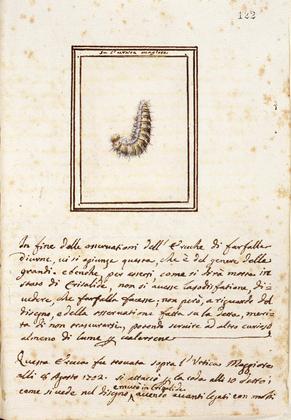 122
In s.l'ortica maggiore
In fine delle osservationi dell'Eruche di farfalle
diurne, vi si agiunge questa, che è del genere delle
grandi. e benche, per essersi, come si dirà morta in
stato di Crisalide, non si avesse la sodisfatione, di
vedere, che farfalla facesse; non però, a riguardo del
disegno, e della osservatione fatta su la detta, meri=
ta di non trascurarsi, potendo servire ad altro curioso
almeno di lume p valersene
Questa Eruca fu trovata sopra l'Ortica Maggiore
alli 6 Agosto 1702. Si attaccò p la coda alli 10 detto;
e mutò in Crisalide
come si vede nel disegno, avendo avanti legati con molti